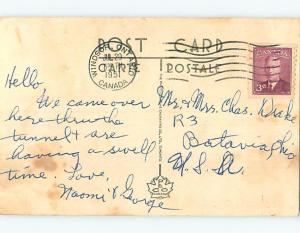 POST CARD
CARTE POSTALE
WINDSOR ONTARIO
1951
CANADA
CANADA
3¢
Hello
We came over
here thru the
tunnel & are
having a swell
time. Love,
Naomi & George
Mr. & Mrs. Chas. Drake
R3
Batavia, Ohio
U.S.A